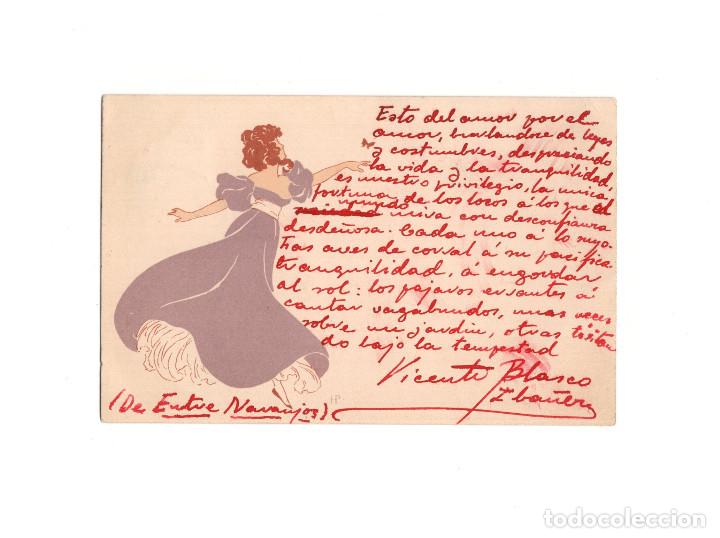 Esto del amor por el
amor, burlandose de leyes
y costumbres, despreciando
la vida y la tranquilidad,
es nuestro privilegio, la unica
fortuna de los locos á los que el
mundo mira con desconfianza
desdeñosa. Cada uno á lo suyo.
Las aves de corral á su pacifica
tranquilidad, á engordar
al sol: los pajaros errantes á
cantar vagabundos, unas veces
sobre un jardin, otras tiritan
do bajo la tempestad
Vicente Blasco
Ibañez
(De Entre Naranjos)
HP.
todocoleccion